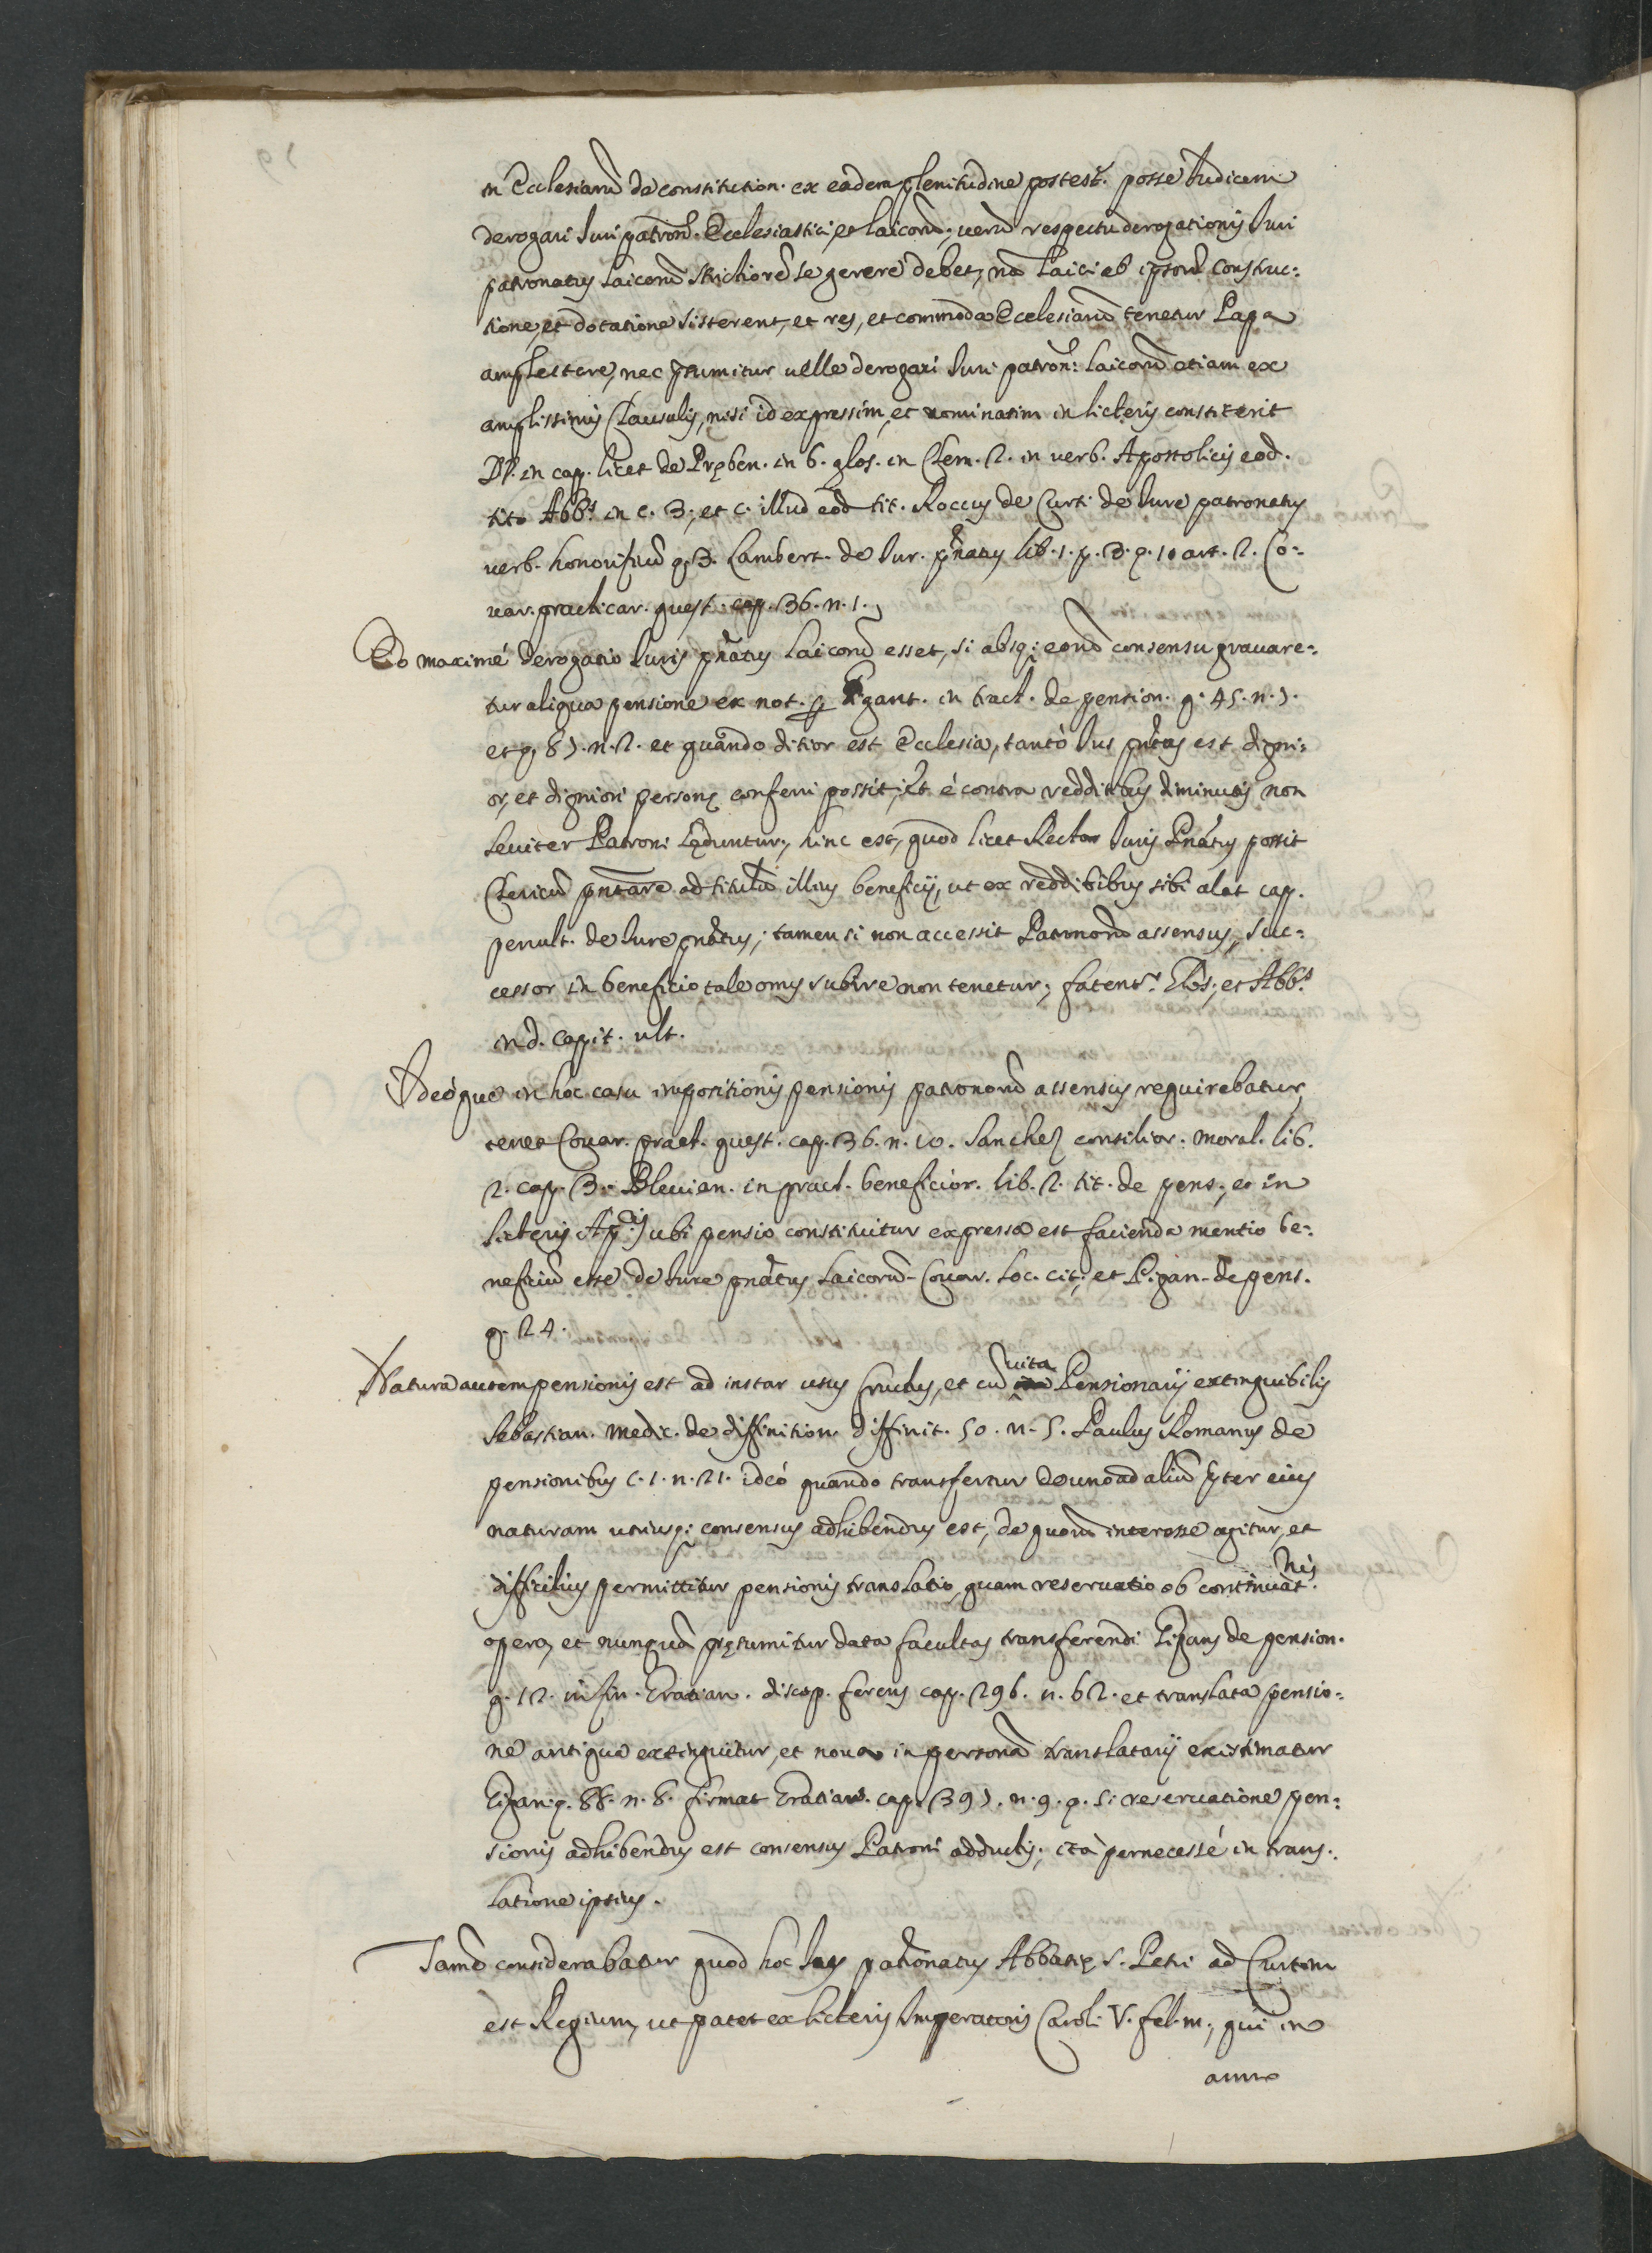 in Ecclesiarũ de constitution. ex eadem plenitudine potest. posse Iudicem
derogari Iuri patron. Ecclesiastici, et laicorũ, uerũ respectu derogationis Iuri
patronatus laicorũ strictiorẽ se gerere debet, nã laici ab ipsorũ construc:
tione, et dotatione sisterent, et res, et commoda Ecclesiarũ tenetur Papa
amplectere, nec p̃sumitur uelle derogari Iuri patron: laicorũ etiam ex
amplissimis Clausulis, nisi id expressim, et nominatim in licteris constiterit
DD. in cap. licet de Pręben. in 6. glos. in Clem. 2. in uerb. Apostolicis eod.
tit. Abb.s in c. 3., et c. illud eod tit. Roccus de Curti de Iure patronatus
uerb. honorificũ q. 3. Lambert. de Iur. pñatus lib. 1. p. 3. q. 10 art. 2. Co:
uar. practicar. quęst. cap. 36. n. 1.
Eo maximé derogatio Iuris pñatus laicorũ esset, si absq; eorũ consensu grauare:
tur aliqua pensione ex not. p Gigant. in tract. de pension. q. 45. n. 5.
et q. 85. n. 2. et quando ditior est Ecclesia, tantò Ius pñatus est digni:
or, et digniori personę conferri possit, et è contra redditibus diminutis non
leuiter Patroni lęduntur, hinc est, quod licet Rector Iuris Pñatus possit
Clericũ pñtare ad titulũ illius beneficij, ut ex redditibus sibi alat cap.
penult. de Iure pñatus; tamen si non accessit Patronorũ assensus, suc:
cessor in beneficio tale onus subire non tenetur, fatent.r Glos., et Abb.s
in d. capit. ult.
Adeóque in hoc casu impositionis pensionis patronorũ assensus requirebatur,
tenet Couar. pract. quęst. cap. 36. n. 10. Sanchez consilior. moral. lib.
2. cap. 3. Bleuian. in pract. beneficior. lib. 2. tit. de pens., et in
licteris Ap.cis ubi pensio constituitur expressa est facienda mentio be:
neficiũ esse de Iure pñatus laicorũ Couar. loc. cit. et Gigan. de pens.
q. 24.
Natura autem pensionis est ad instar usus fructus, et cũ uita Pensionarij extinguibilis
Sebastian. Medic. de diffinition. diffinit. 50. n. 5. Paulus Romanus de
pensionibus c. 1. n. 21. ideó quando transfertur de uno ad aliũ p̃ter eius
naturam utriusq; consensus adhibendus est, de quorũ interesse agitur, et
difficilius permittitur pensionis translatio, quam reseruatio ob continuat.nis
opera, et nunquã pręsumitur data facultas transferendi Gigans de pension.
q. 12. in fin. Gratian. discep. forens cap. 296. n. 62. et translata pensio:
ne antiqua extinguitur, et noua in personã translatarij existimatur
Gigan. q. 88. n. 8. firmat Gratian. cap. 395. n. 9. q. si reseruatione pen:
sionis adhibendus est consensus Patroni adductis, ita pernecessé in trans:
latione ipsius.
Iamò considerabatur quod hoc Ius patronatus Abbatię S. Petri ad Curtim
est Regium, ut patet ex licteris Imperatoris Caroli V. fel. m., qui in
anno